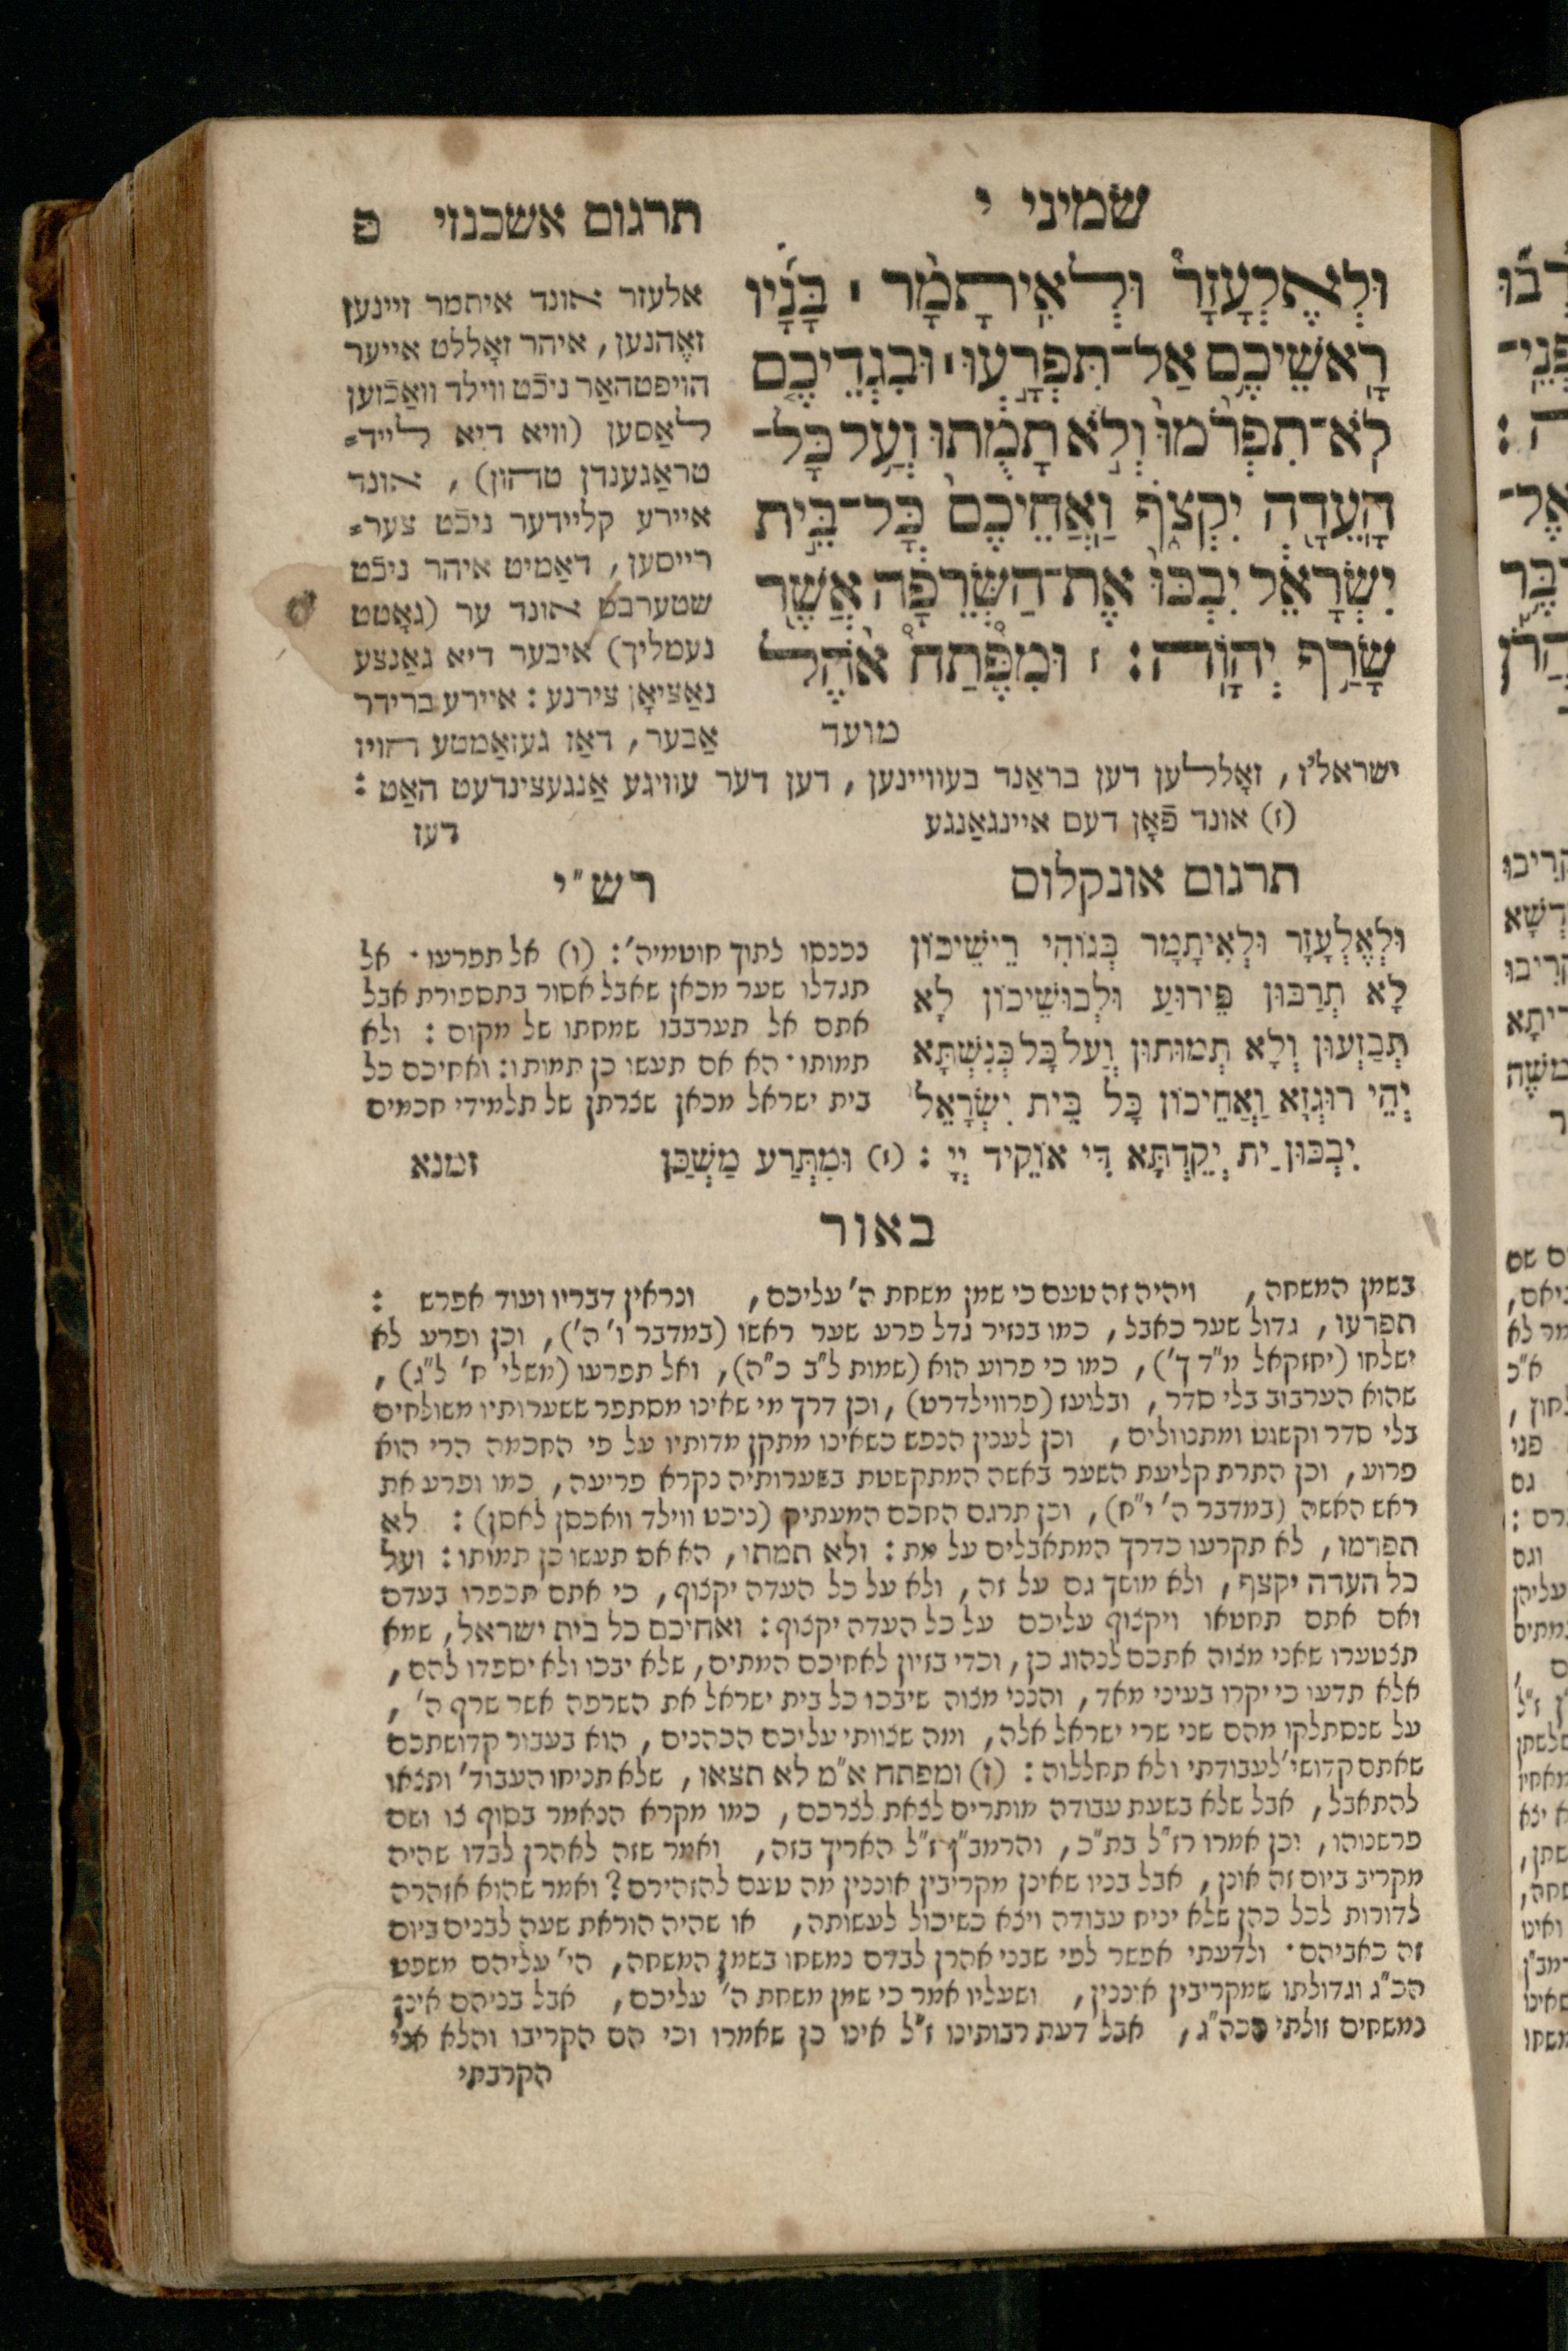 שמיני י
תרגום אשכנזי פ
וּלְאֶלְעָזָר֩ וּלְאִֽיתָמָ֨ר ׀ בָּנָ֜יו
רָֽאשֵׁיכֶ֥ם אַל־תִּפְרָ֣עוּ ׀ וּבִגְדֵיכֶ֤ם
לֹֽא־תִפְרֹ֙מוּ֙ וְלֹ֣א תָמֻ֔תוּ וְעַ֥ל כָּל־
הָעֵדָ֖ה יִקְצֹ֑ף וַאֲחֵיכֶם֙ כָּל־בֵּ֣ית
יִשְׂרָאֵ֔ל יִבְכּוּ֙ אֶת־הַשְּׂרֵפָ֔ה אֲשֶׁ֖ר
שָׂרַ֥ף יְהוָֽה׃ ז וּמִפֶּ֩תַח֩ אֹ֨הֶל
מועד
אלעזר אונד איתמר זיינען
זאֶהנען, איהר זאָללט אייער
הויפטהאַר ניכֿט ווילד וואַכֿזען
לאַסען (וויא דיא לייד=
טראַגענדן טהון), אונד
איירע קליידער ניכֿט צער=
רייסען, דאַמיט איהר ניכֿט
שטערבט אונד ער (גאָטט
נעמליך) איבער דיא גאַנצע
נאַציאָן צירנע: איירע ברידר
אַבער, דאַז געזאַמטע הויז
ישראל'ז, זאָללען דען בראַנד בעוויינען, דען דער עוויגע אַנגעצינדעט האַט:
(ז) אונד פֿאָן דעם איינגאַנגע
דעז
תרגום אונקלוס
וּלְאֶלְעָזָר וּלְאִיתָמָר בְּנוֹהִי רֵישֵׁיכוֹן
לָא תְרַבּוּן פֵּירוּעַ וּלְבוּשֵׁיכוֹן לָא
תְבַזְעוּן וְלָא תְמוּתוּן וְעַל כָּל כְּנִשְׁתָּא
יְהֵי רוּגְזָא וַאֲחֵיכוֹן כָּל בֵּית יִשְׂרָאֵל
יִבְכּוּן יַת יְקֵדְתָּא דִּי אוֹקֵיד יְיָ: (ז) וּמִתְּרַע מַשְׁכַּן
זמנא
רש"י
נכנסו לתוך חוטמיה': (ו) אל תפרעו. אל
תגדלו שער מכאן שאבל אסור בתספורת אבל
אתם אל תערבבו שמחתו של מקום: ולא
תמותו. הא אם תעשו כן תמותו: ואחיכם כל
בית ישראל מכאן שצרתן של תלמידי חכמים
באור
בשמן המשחה, ויהיה זה טעם כי שמן משחת ה' עליכם, ונראין דבריו ועוד אפרש:
תפרעו, גדול שער כאבל, כמו בנזיר גדל פרע שער ראשו (במדבר ו' ה'), וכן ופרע לא
ישלחו (יחזקאל מ"ד ך'), כמו כי פרוע הוא (שמות ל"ב כ"ה), ואל תפרעו (משלי ח' ל"ג),
שהוא הערבוב בלי סדר, ובלועז (פרווילדרט), וכן דרך מי שאינו מסתפר ששערותיו משולחים
בלי סדר וקשוט ומתנוולים, וכן לענין הנפש כשאינו מתקן מדותיו על פי החכמה הרי הוא
פרוע, וכן התרת קליעת השער באשה המתקשטת בשערותיה נקרא פריעה, כמו ופרע את
ראש האשה (במדבר ה' י"ח), וכן תרגם החכם המעתיק (ניכט ווילד וואכסן לאסן): לא
תפרמו, לא תקרעו כדרך המתאבלים על מת: ולא תמתו, הא אם תעשו כן תמותו: ועל
כל העדה יקצף, ולא מושך גם על זה, ולא על כל העדה יקצוף, כי אתם תכפרו בעדם
ואם אתם תחטאו ויקצוף עליכם על כל העדה יקצוף: ואחיכם כל בית ישראל, שמא
תצטערו שאני מצוה אתכם לנהוג כן, וכדי בזיון לאחיכם המתים, שלא יבכו ולא יספדו להם,
אלא תדעו כי יקרו בעיני מאד, והנני מצוה שיבכו כל בית ישראל את השרפה אשר שרף ה',
על שנסתלקו מהם שני שרי ישראל אלה, ומה שצוותי עליכם הכהנים, הוא בעבור קדושתכם
שאתם קדושי' לעבודתי ולא תחללוה: (ז) ומפתח א"מ לא תצאו, שלא תניחו העבוד' ותצאו
להתאבל, אבל שלא בשעת עבודה מותרים לצאת לצרכם, כמו מקרא הנאמר בסוף צו ושם
פרשנוהו, וכן אמרו רז"ל בת"כ, והרמב"ן ז"ל האריך בזה, ואמר שזה לאהרן לבדו שהיה
מקריב ביום זה אונן, אבל בניו שאינן מקריבין אוננין מה טעם להזהירם? ואמר שהוא אזהרה
לדורות לכל כהן שלא יניח עבודה ויצא כשיכול לעשותה, או שהיה הוראת שעה לבנים ביום
זה כאביהם. ולדעתי אפשר לפי שבני אהרן לבדם נמשחו בשמן המשחה, הי' עליהם משפט
הכ"ג וגדולתו שמקריבין אוננין, ושעליו אמר כי שמן משחת ה' עליכם, אבל בניהם אינן
נמשחים זולתי הכה"ג, אבל דעת רבותינו ז"ל אינו כן שאמרו וכי הם הקריבו והלא אני
הקרבתי